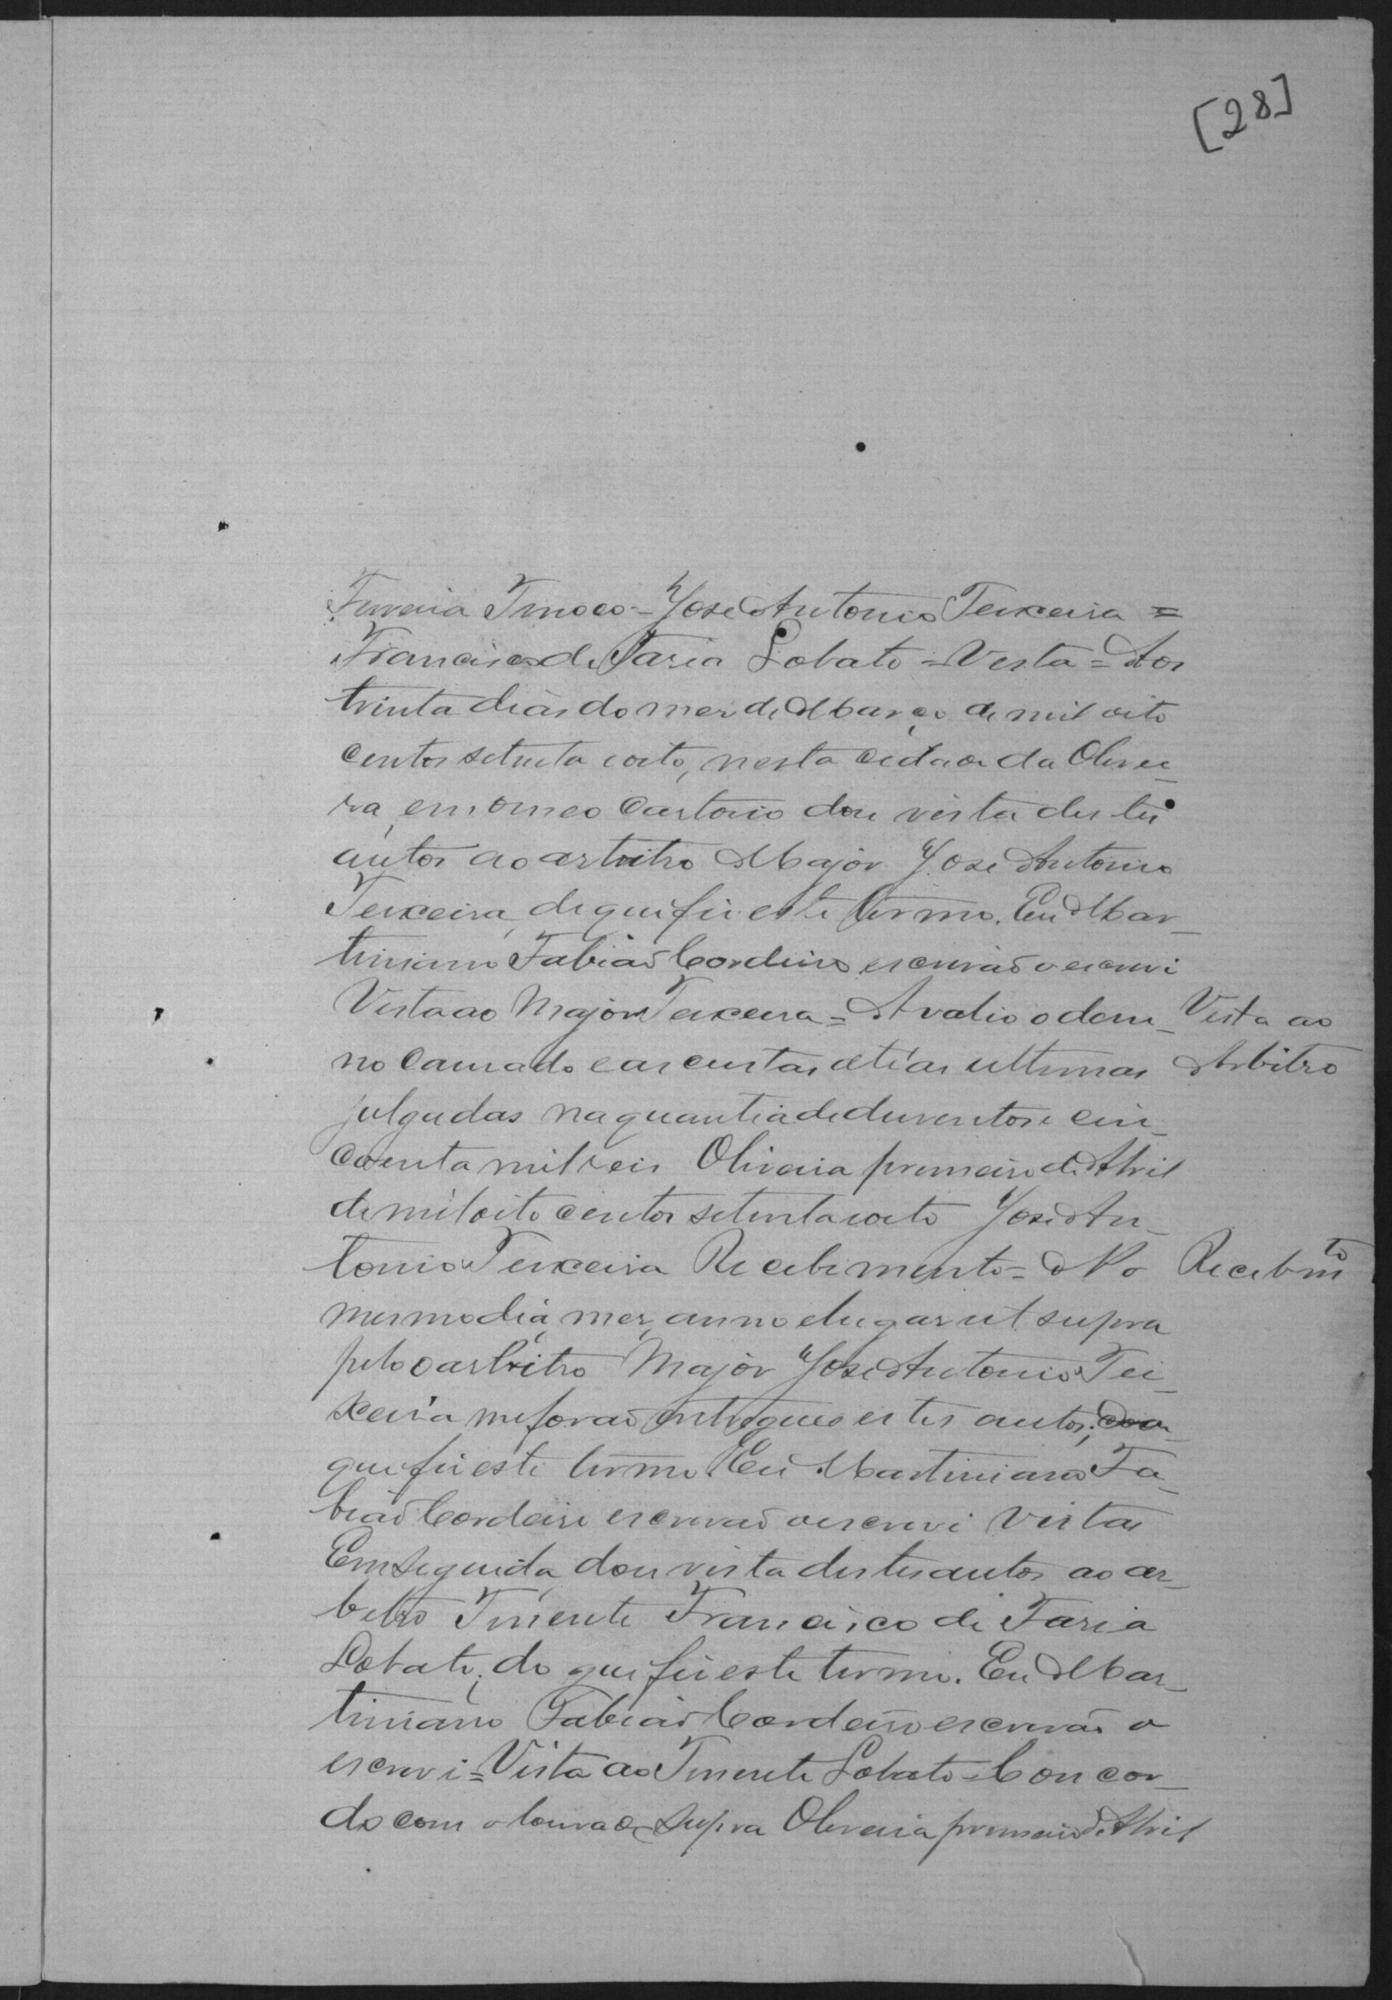 [28]
Ferreira Tinoco = José Antonio Teixeira =
Francisco de Faria Lobato = Vista = Aos
trinta dias do mez de Março de mil oito
centos setenta e oito, nesta cidade da Olivei_
ra, em o meo Cartorio dou vista destes
autos ao arbitro Major José Antonio
Teixeira, de que fiz este termo. Eu Mar_
tiniano Fabião Cordeiro escrivão o escrevi
Vista ao Major Teixeira = Avalio o dam_
Vista ao
no causado e as custas até as ultimas
Arbitro
julgadas na quantia de duzentos e cin_
coenta mil reis Oliveira primeiro de Abril
de mil oito centos setenta e oito José An_
tonio Teixeira Recebimento = No
Recebmto
mesmo dia, mez, anno e lugar ut supra
pelo o arbitro Major José Antonio Tei_
xeira me forão entregues estes autos; do
que fiz este termo. Eu Martiniano Fa_
bião Cordeiro escrivão o escrevi Vistas
Em seguida, dou vista destes autos ao ar_
bitro Tinente Francisco de Faria
Lobato; do que fiz este termo. Eu Mar_
tiniano Fabião Cordeiro escrivão o
escrevi = Vista ao Tinente Lobato = Concor_
do com o louvado supra Oliveira primeiro de Abril